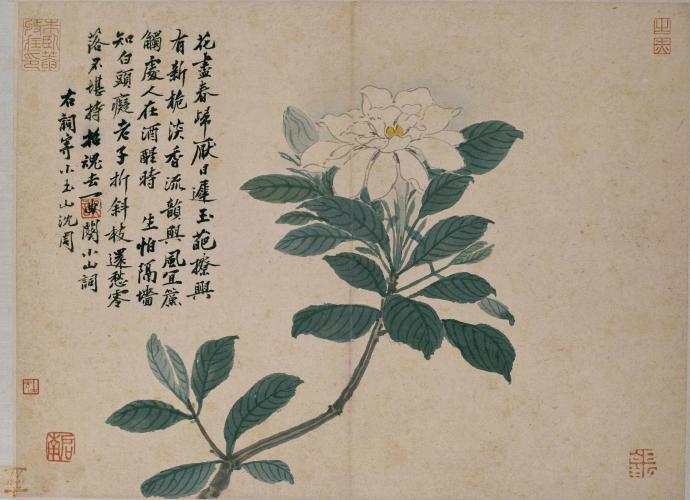 花盡春歸厭日遲玉葩撩興
有新梔淡香流韻與風宜簾
觸處人在酒醒時 生怕隔墻
知白頭癡老子折斜枝還愁零
落不堪持招魂去一曲闋小山詞
右詞寄小玉山沈周
啟南